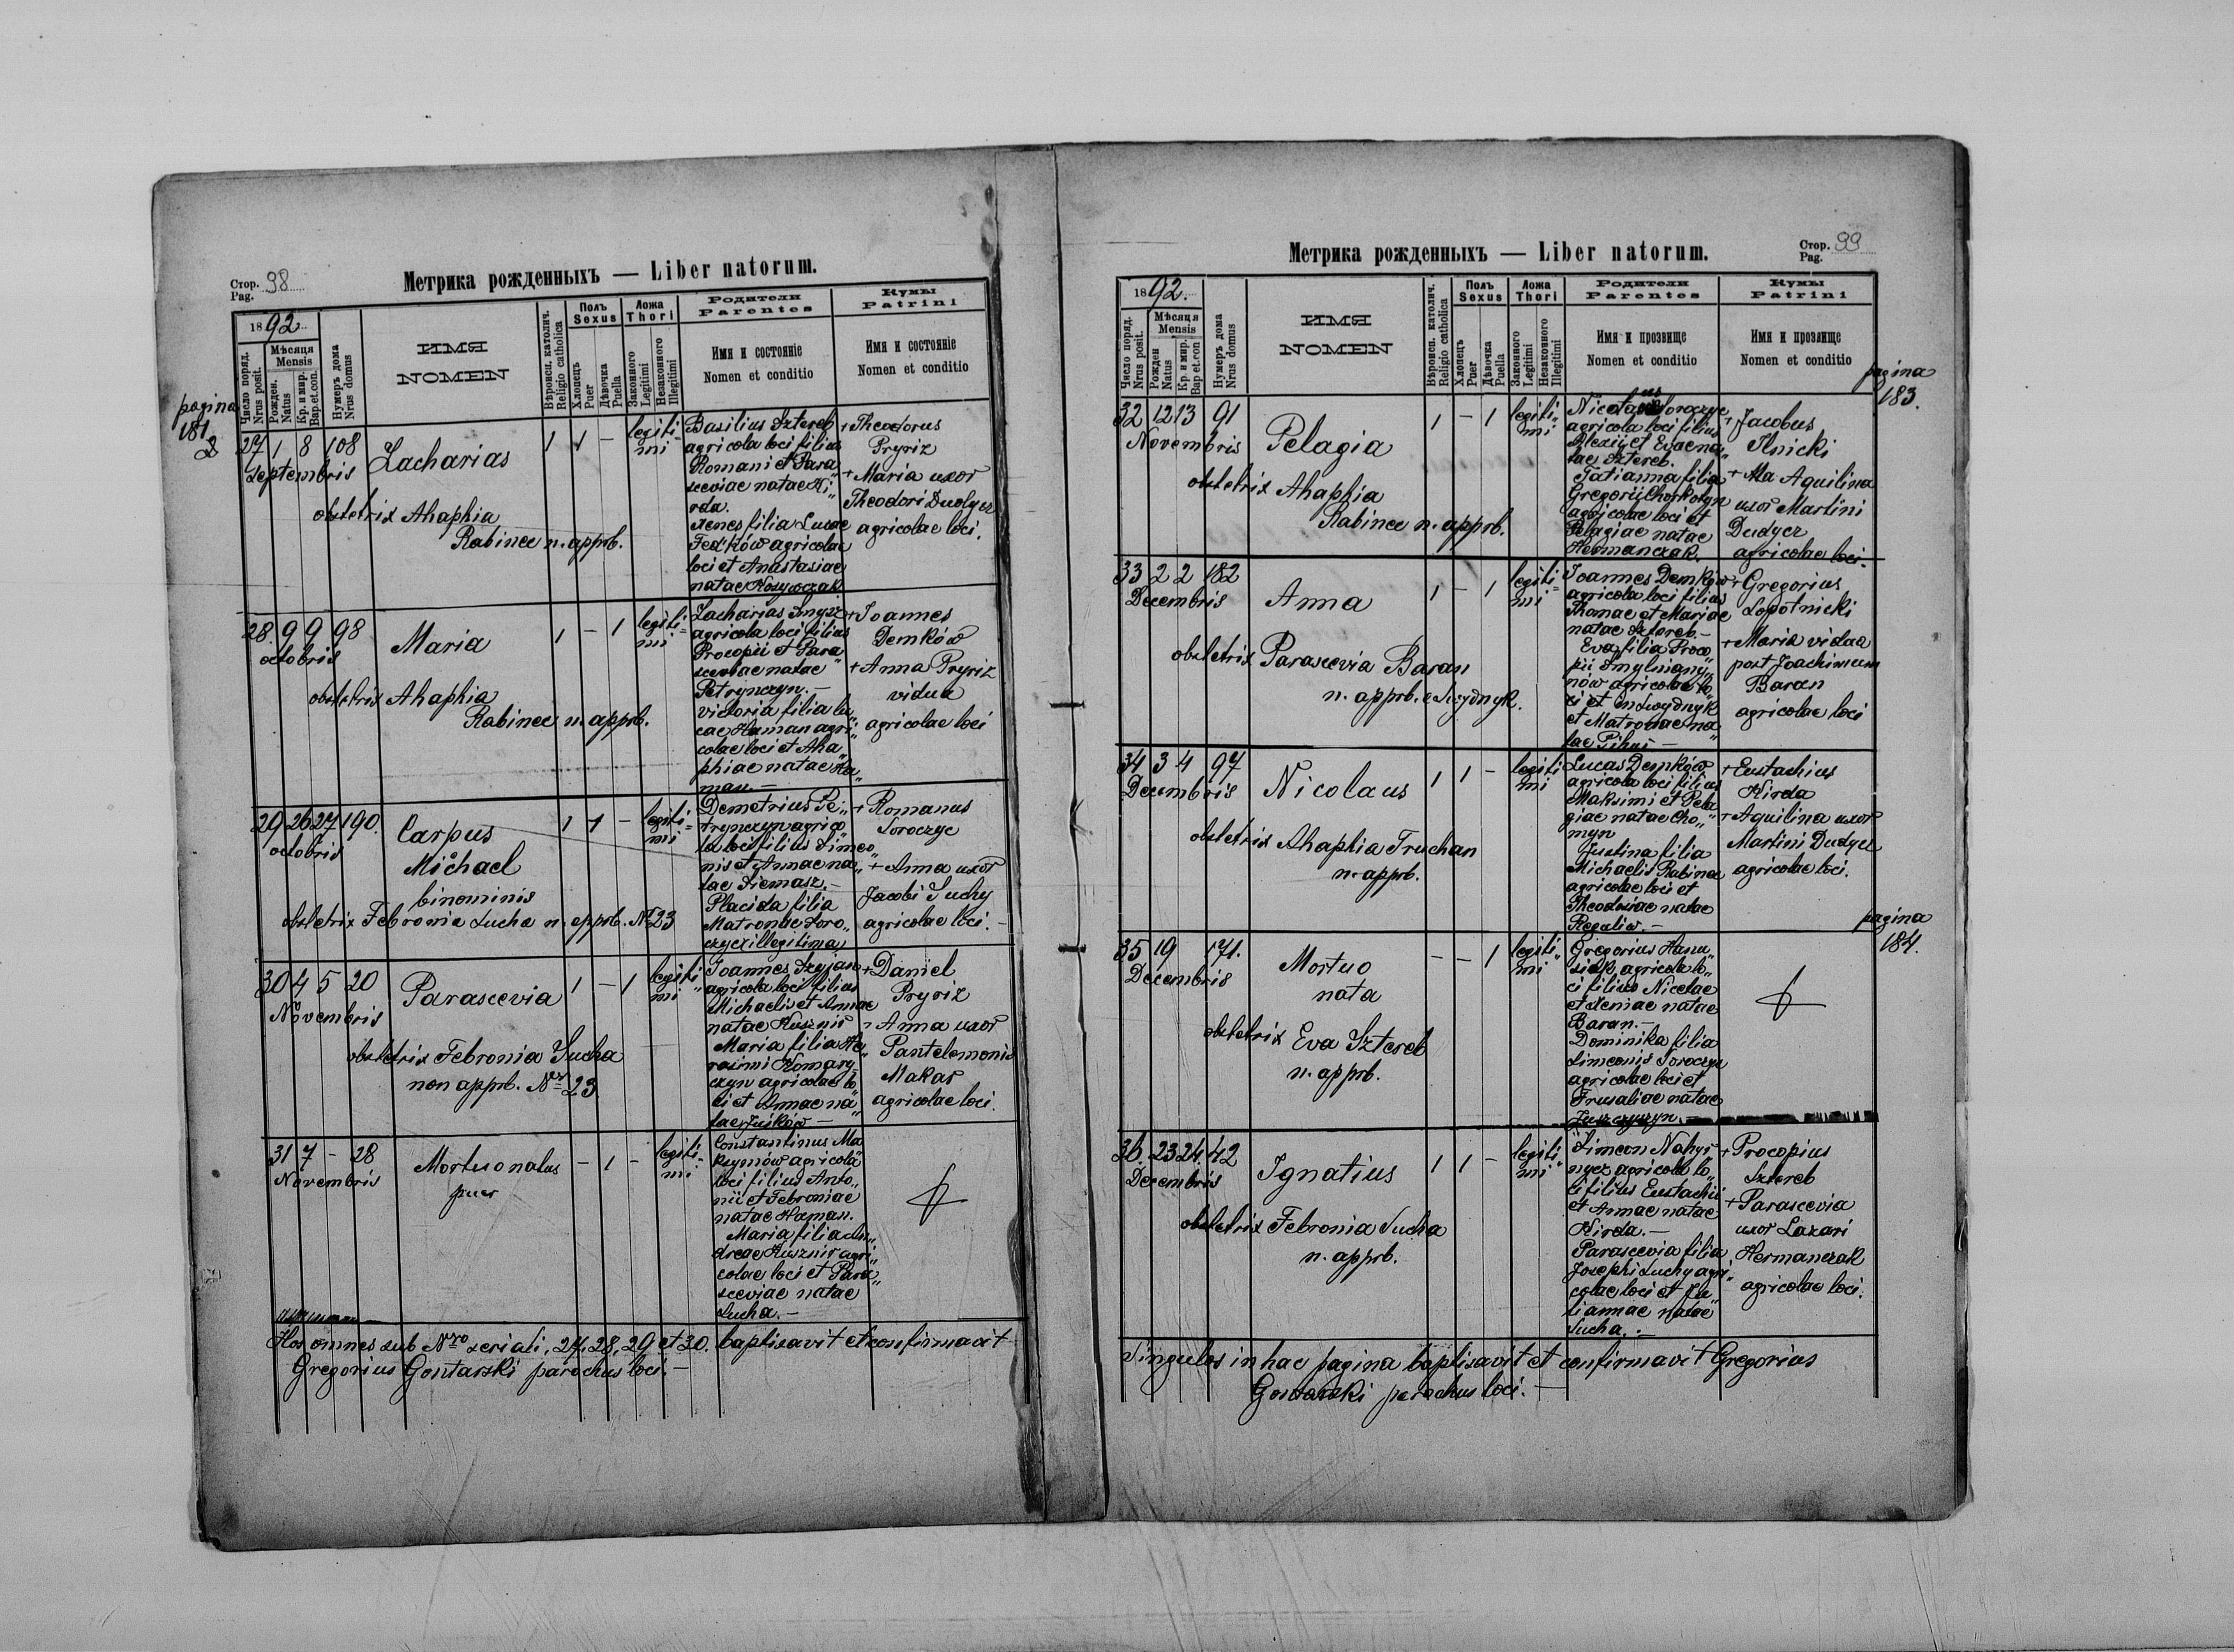 Стор. 98
Pag.
Метрика рожденныхъ — Liber natorum.
1892
Число поряд.
Nrus posit.
Мѣсяця
Mensis
Рожден.
Natus
Кр. и мир.
Bap.et.con.
Нумеръ дома
Nrus domus
ИМЯ
NOMEN
Вѣроисп. католич.
Religio catholica
Полъ
Sexus
Хлопецъ
Puer
Дѣвочка
Puella
Ложа
Thori
Законного
Legitimi
Незаконного
Illegitimi
Родители
Parentes
Имя и состояніе
Nomen et conditio
Кумы
Patrini
Имя и состояніе
Nomen et conditio
pagina
181
27 1 8 108
Septembris
Zacharias
1 1 –
legiti-
mi
obstetrix Ahaphia
Rabinee n. apprb.
Basilius Sztereb
agricola loci filius
Romani et Para„
sceviae natae Ki„
rda.
Xenes filia Lucae
Fed'ków agricolae
loci et Anastasiae
natae Kosywczak
+ Theodorus
Pryriz
+ Maria uxor
Theodori Dudycz
agricolae loci.
28 9 9 98
octobris
Maria
1 – 1
legiti-
mi
obstetrix Ahaphia
Rabinee n. apprb.
Zacharias Smysz
agricola loci filius
Procopii et Para
sceviae natae
Petrynczyn. –
Victoria filia Lu„
cae Haman agri„
colae loci et Aha„
phiae natae Ha„
man. –
+ Joannes
Demków
+ Anna Pryriz
vidua
agricolae loci
29 26 27 190.
octobris
Carpus
Michael
binominis
1 1 –
legiti-
mi
obstetrix Febronia Sucha n. apprb. Nr 23
Demetrius Pe„
trynczyn agrico„
la loci filius Simeo„
nis et Annae na„
tae Siemasz. –
Placida filia
Matronae Soro„
czycz illegitima
+ Romanus
Soroczyc
+ Anna uxor
Jacobi Suchy
agricolae loci. –
30 4 5 20
Novembris
Parascevia
1 – 1
legiti„
mi
obstetrix Febronia Sucha
non apprb. Nr 23
Joannes Szyjan
agricola loci filius
Michaelis et Annae
natae Kusznir
Maria filia Ha„
rasimi Komary„
czyn agricolae lo„
ci et Annae na„
tae Jusków –
+ Daniel
Pryriz
+ Anna uxor
Pantelemonis
Makar
agricolae loci.
31 7 – 28
Novembris
Mortuo natus
puer
– 1 –
legiti-
mi
Constantinus Ma
ksymów agricola
loci filius Anto„
nii et Febroniae
natae Haman.
Maria filia An„
dreae Kusznir agri„
colae loci et Para„
sceviae natae
Sucha. –
Hos omnes sub Nro seriali, 27, 28, 29 et 30. baptisavit et confirmavit
Gregorius Gontarski parochus loci. –
Стор. 99
Pag.
Метрика рожденныхъ — Liber natorum.
1892.
Число поряд.
Nrus posit.
Мѣсяця
Mensis
Рожден
Natus
Кр. и мир.
Bap et.con
Нумеръ дома
Nrus domus
ИМЯ
NOMEN
Вѣроисп. католич.
Religio catholica
Полъ
Sexus
Хлопецъ
Puer
Дѣвочка
Puella
Ложа
Thori
Законного
Legitimi
Незаконного
Illegitimi
Родители
Parentes
Имя и прозвище
Nomen et conditio
Кумы
Patrini
Имя и прозвище
Nomen et conditio
pagina
183.
32 12 13 91
Novembris
Pelagia
1 – 1
legiti„
mi
obstetrix Ahaphia
Rabinee n. apprb.
Nicolaus Soroczyc
agricola loci filius
Alexii et Evae na„
tae Sztereb.
Tatianna filia
Gregorii Chorkotyn
agricolae loci et
Pelagiae natae
Hermanczak.
+ Jacobus
Ilnicki
+ Aquilina
uxor Martini
Dudycz
agricolae loci.
33 2 2 182
Decembris
Anna
1 – 1
legiti-
mi
obstetrix Parascevia Baran
n. apprb. e Swydnyk.
Joannes Demków
agricola loci filius
Thomae et Mariae
natae Sztereb. –
Eva filia Proco„
pii Smylniany„
nów agricolae lo„
ci et in Swydnyk
et Matronae na„
tae Pihus –
+ Gregorius
Lopotnicki
+ Maria vidua
post Joachimum
Baran
agricolae loci
34 3 4 97
Decembris
Nicolaus
1 1 –
legiti
mi
obstetrix Ahaphia Truchan
n. apprb.
Lucas Demków
agricola loci filius
Maksimi et Pela
giae natae Cho„
myn
Justina filia
Michaelis Rabinee
agricolae loci et
Theodosiae natae
Regaliw. –
+ Eustachius
Kirda
+ Aquilina uxor
Martini Dudycz
agricolae loci.
pagina
184.
35 19 171.
Decembris
Mortuo
nata
– – 1
legiti„
mi
obstetrix Eva Sztereb
n. apprb.
Gregorius Hanu„
siak agricola lo„
ci filius Nicetae
et Xeniae natae
Baran. –
Dominika filia
Simeonis Soroczyc
agricolae loci et
Frusaliae natae
Juszczyszyn. –
36. 23 24. 42
Decembris
Ignatius
1 1 –
legiti„
mi
obstetrix Febronia Sucha
n. apprb.
Simeon Nahyr„
nycz agricola lo„
ci filius Eustachii
et Annae natae
Kirda. –
Parascevia filia
Josephi Suchy agri„
colae loci et Ju
liannae natae
Sucha. –
+ Procopius
Sztereb
+ Parascevia
uxor Lazari
Hermanczak
agricolae loci.
Singulos in hac pagina baptisavit et confirmavit Gregorius
Gontarski parochus loci. –